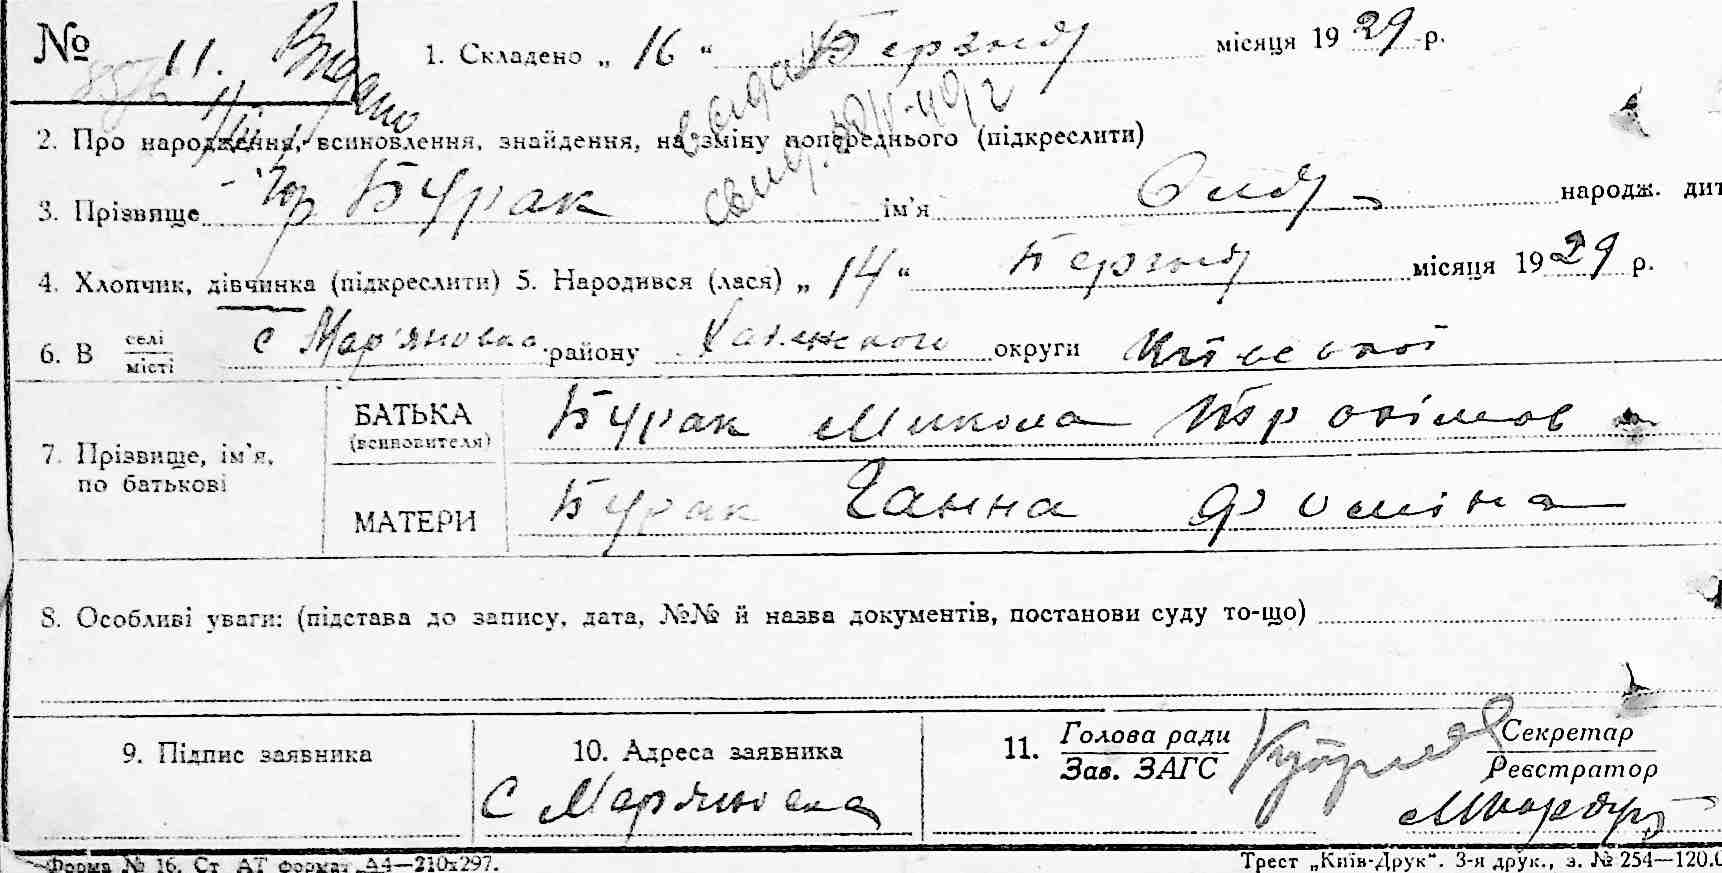 № 11. Видано 1. Складено „ 16 “ Березня місяця 1929 р.
2. Про народження, всиновлення, знайдення, на зміну попереднього (підкреслити)
3. Прізвище Бурак ім'я народж. дит
4. Хлопчик, дівчинка (підкреслити) 5. Народився (лася) „ 14 “ Березня місяця 1929 р.
6. В селі/місті с Мар'яновка району округи Київської
7. Прізвище, ім'я, по батькові
БАТЬКА (всиновителя) Бурак Микола Трохимов
МАТЕРИ Бурак Ганна Фоміна
8. Особливі уваги: (підстава до запису, дата, №№ й назва документів, постанови суду то-що)
9. Підпис заявника 10. Адреса заявника 11. Голова ради Секретар
Зав. ЗАГС Реєстратор
С Мар'яновка
Форма № 16. Ст АТ формат А4—210х297. Трест „Київ-Друк“. 3-я друк., з. № 254—120.0